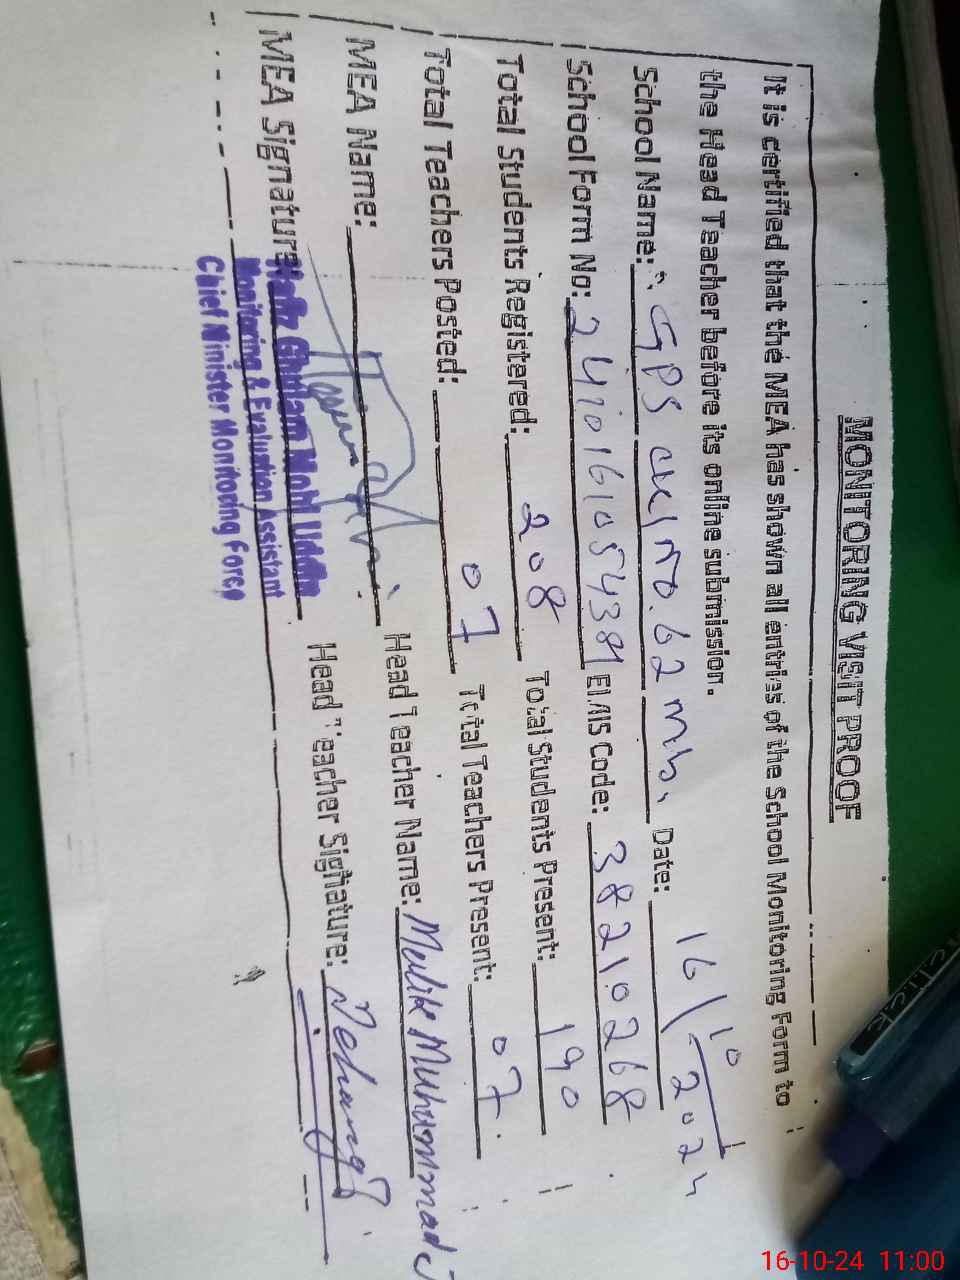 MONITORING VISIT PROOF
It is certified that the MEA has shown all entries of the School Monitoring Form to
the Head Teacher before its online submission.
School Name: GPS No. 62 Date: 16/10/2024
School Form No: EMIS Code: 38210268
Total Students Registered: 208 Total Students Present: 190
Total Teachers Posted: 07 Total Teachers Present: 07
MEA Name: Head Teacher Name: Malik Muhammad J
MEA Signature: Head Teacher Signature: Jehangir
Hafiz Ghulam Mohi Uddin
Monitoring & Evaluation Assistant
Chief Minister Monitoring Force
click
16-10-24 11:00